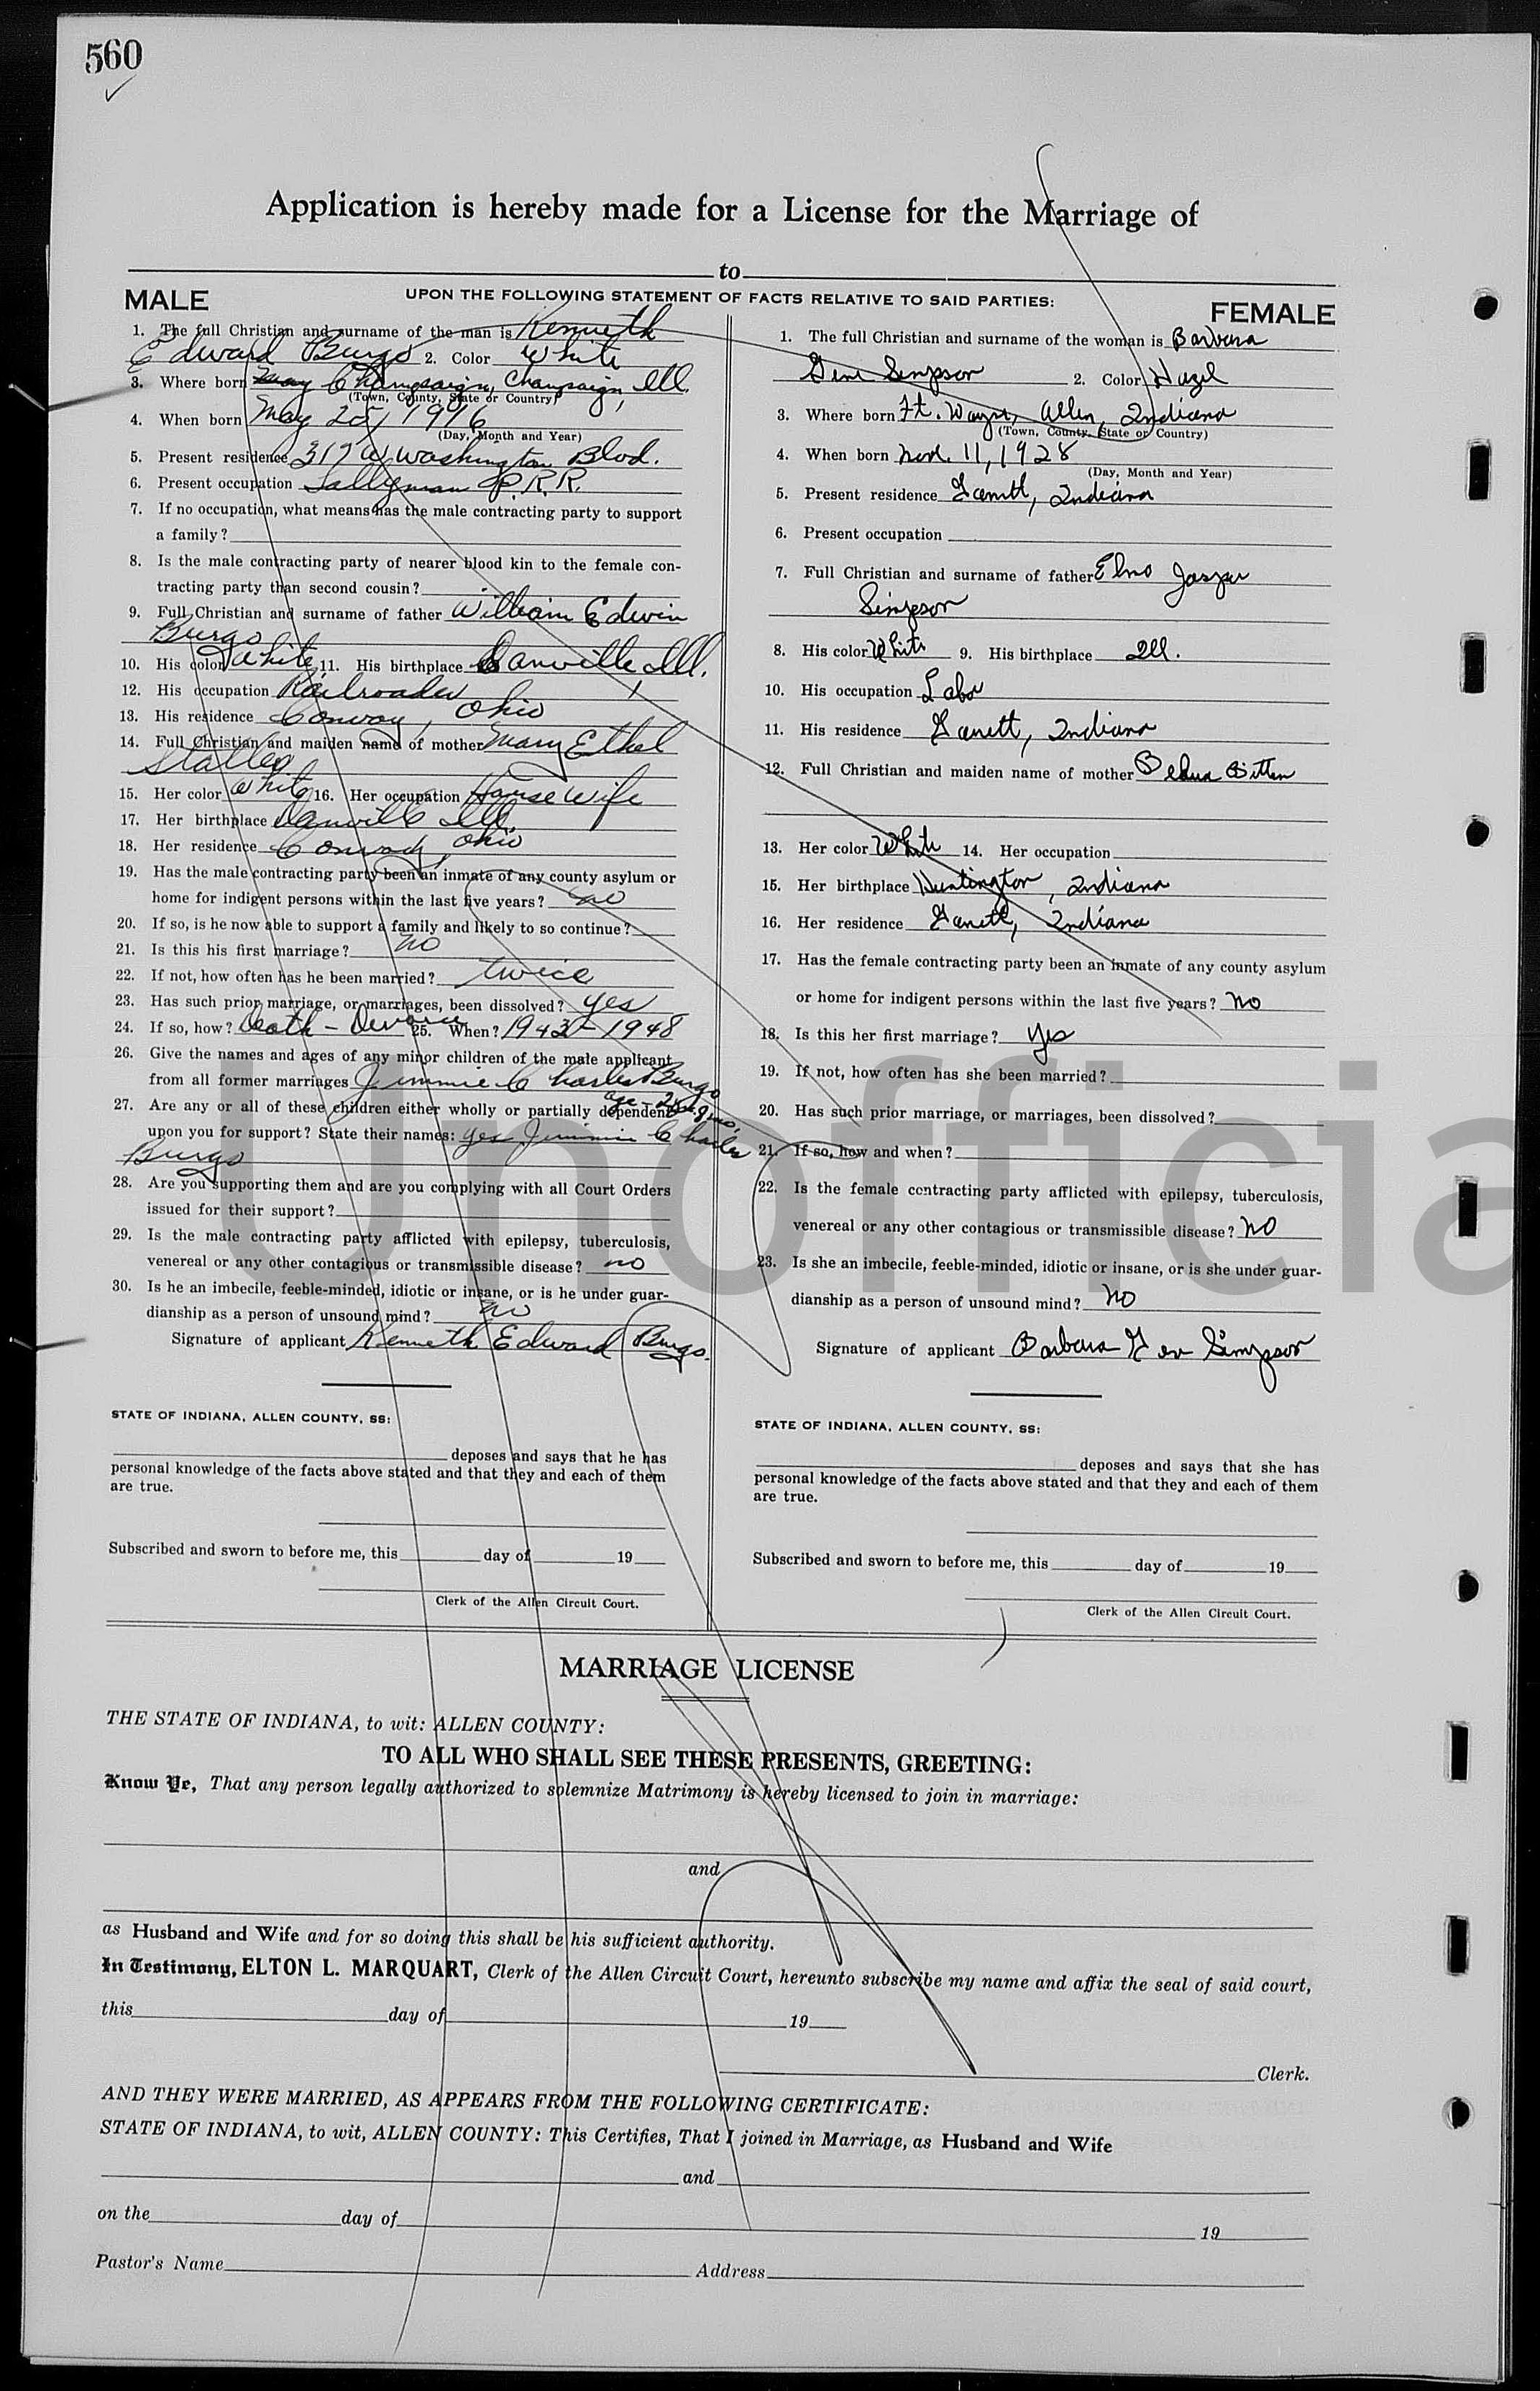 560
Application is hereby made for a License for the Marriage of
to
MALE UPON THE FOLLOWING STATEMENT OF FACTS RELATIVE TO SAID PARTIES: FEMALE
1. The full Christian and surname of the man is Kenneth
Edward Burgo 2. Color White
3. Where born May Champaign, Champaign, Ill.
(Town, County, State or Country)
4. When born May 25, 1916
(Day, Month and Year)
5. Present residence 317 W Washington Blvd.
6. Present occupation Tallyman P.R.R.
7. If no occupation, what means has the male contracting party to support
a family?
8. Is the male contracting party of nearer blood kin to the female con-
tracting party than second cousin?
9. Full Christian and surname of father William Edwin
Burgo
10. His color White 11. His birthplace Danville, Ill.
12. His occupation Railroader
13. His residence Conway, Ohio
14. Full Christian and maiden name of mother Mary Ethel
15. Her color White 16. Her occupation House Wife
17. Her birthplace Danville Ill.
18. Her residence Conway, Ohio
19. Has the male contracting party been an inmate of any county asylum or
home for indigent persons within the last five years? no
20. If so, is he now able to support a family and likely to so continue?
21. Is this his first marriage? no
22. If not, how often has he been married? twice
23. Has such prior marriage, or marriages, been dissolved? yes
24. If so, how? Death - Divorce 25. When? 1943 - 1948
26. Give the names and ages of any minor children of the male applicant
from all former marriages Jimmie Charles Burgo
age -
27. Are any or all of these children either wholly or partially dependent
upon you for support? State their names: yes Jimmie Charles
Burgo
28. Are you supporting them and are you complying with all Court Orders
issued for their support?
29. Is the male contracting party afflicted with epilepsy, tuberculosis,
venereal or any other contagious or transmissible disease? no
30. Is he an imbecile, feeble-minded, idiotic or insane, or is he under guar-
dianship as a person of unsound mind? no
Signature of applicant Kenneth Edward Burgo.
STATE OF INDIANA, ALLEN COUNTY, SS:
deposes and says that he has
personal knowledge of the facts above stated and that they and each of them
are true.
Subscribed and sworn to before me, this day of 19
Clerk of the Allen Circuit Court.
1. The full Christian and surname of the woman is Barbara
Gene Simpson 2. Color Hazel
3. Where born Ft. Wayne, Allen, Indiana
(Town, County, State or Country)
4. When born Nov. 11, 1928
(Day, Month and Year)
5. Present residence Garrett, Indiana
6. Present occupation
7. Full Christian and surname of father Elno Jasper
Simpson
8. His color White 9. His birthplace Ill.
10. His occupation Labor
11. His residence Garrett, Indiana
12. Full Christian and maiden name of mother
13. Her color White 14. Her occupation
15. Her birthplace Huntington, Indiana
16. Her residence Garrett, Indiana
17. Has the female contracting party been an inmate of any county asylum
or home for indigent persons within the last five years? no
18. Is this her first marriage? yes
19. If not, how often has she been married?
20. Has such prior marriage, or marriages, been dissolved?
21. If so, how and when?
22. Is the female contracting party afflicted with epilepsy, tuberculosis,
venereal or any other contagious or transmissible disease? no
23. Is she an imbecile, feeble-minded, idiotic or insane, or is she under guar-
dianship as a person of unsound mind? no
Signature of applicant Barbara Simpson
STATE OF INDIANA, ALLEN COUNTY, SS:
deposes and says that she has
personal knowledge of the facts above stated and that they and each of them
are true.
Subscribed and sworn to before me, this day of 19
Clerk of the Allen Circuit Court.
Unofficia
MARRIAGE LICENSE
THE STATE OF INDIANA, to wit: ALLEN COUNTY:
TO ALL WHO SHALL SEE THESE PRESENTS, GREETING:
Know Ye, That any person legally authorized to solemnize Matrimony is hereby licensed to join in marriage:
and
as Husband and Wife and for so doing this shall be his sufficient authority.
In Testimony, ELTON L. MARQUART, Clerk of the Allen Circuit Court, hereunto subscribe my name and affix the seal of said court,
this day of 19
Clerk.
AND THEY WERE MARRIED, AS APPEARS FROM THE FOLLOWING CERTIFICATE:
STATE OF INDIANA, to wit, ALLEN COUNTY: This Certifies, That I joined in Marriage, as Husband and Wife
and
on the day of 19
Pastor's Name Address